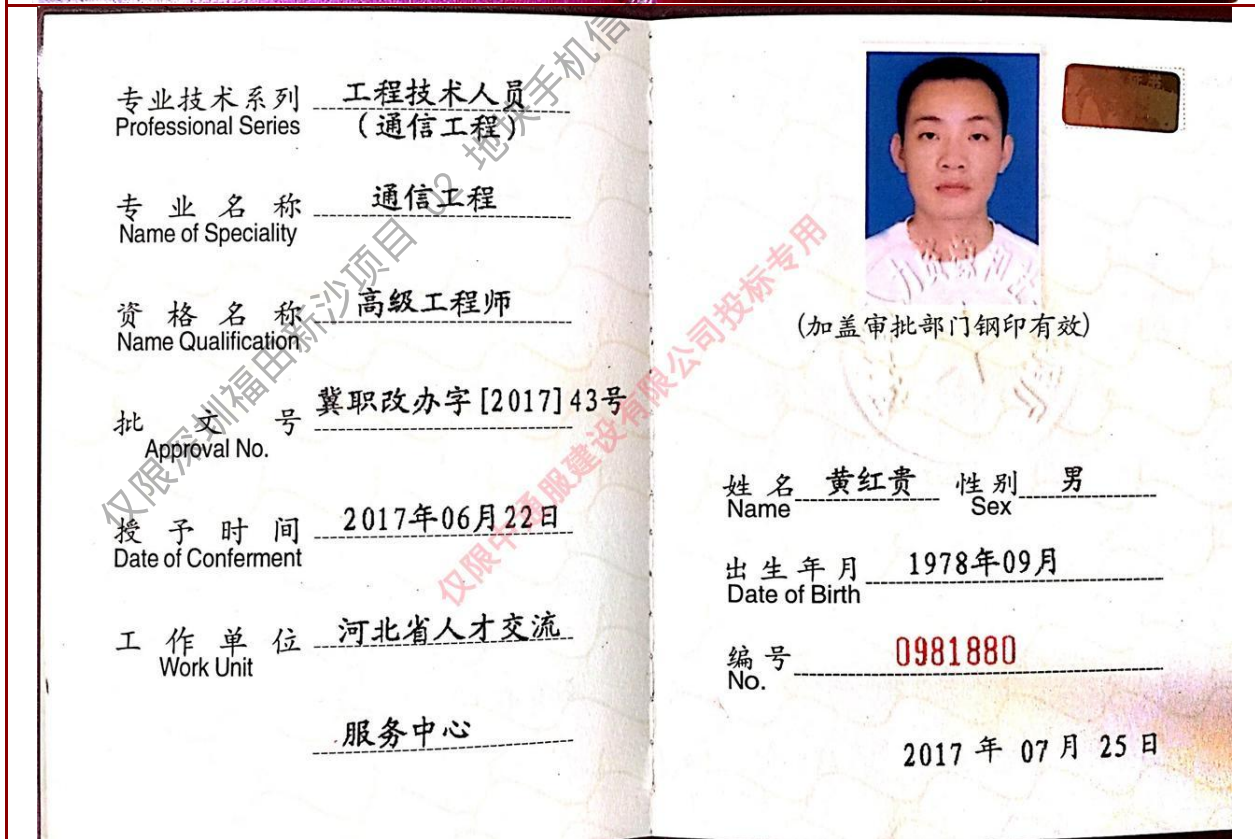 专业技术系列 工程技术人员
Professional Series (通信工程)
专业名称 通信工程
Name of Speciality
资格名称 高级工程师
Name Qualification
批文号 冀职改办字[2017]43号
Approval No.
授予时间 2017年06月22日
Date of Conferment
工作单位 河北省人才交流
Work Unit
服务中心
仅限深圳福田新沙项目 02 地块手机信
仅限中通服建设有限公司投标专用
(加盖审批部门钢印有效)
姓名 黄红贵 性别 男
Name Sex
出生年月 1978年09月
Date of Birth
编号 0981880
No.
2017 年 07 月 25 日